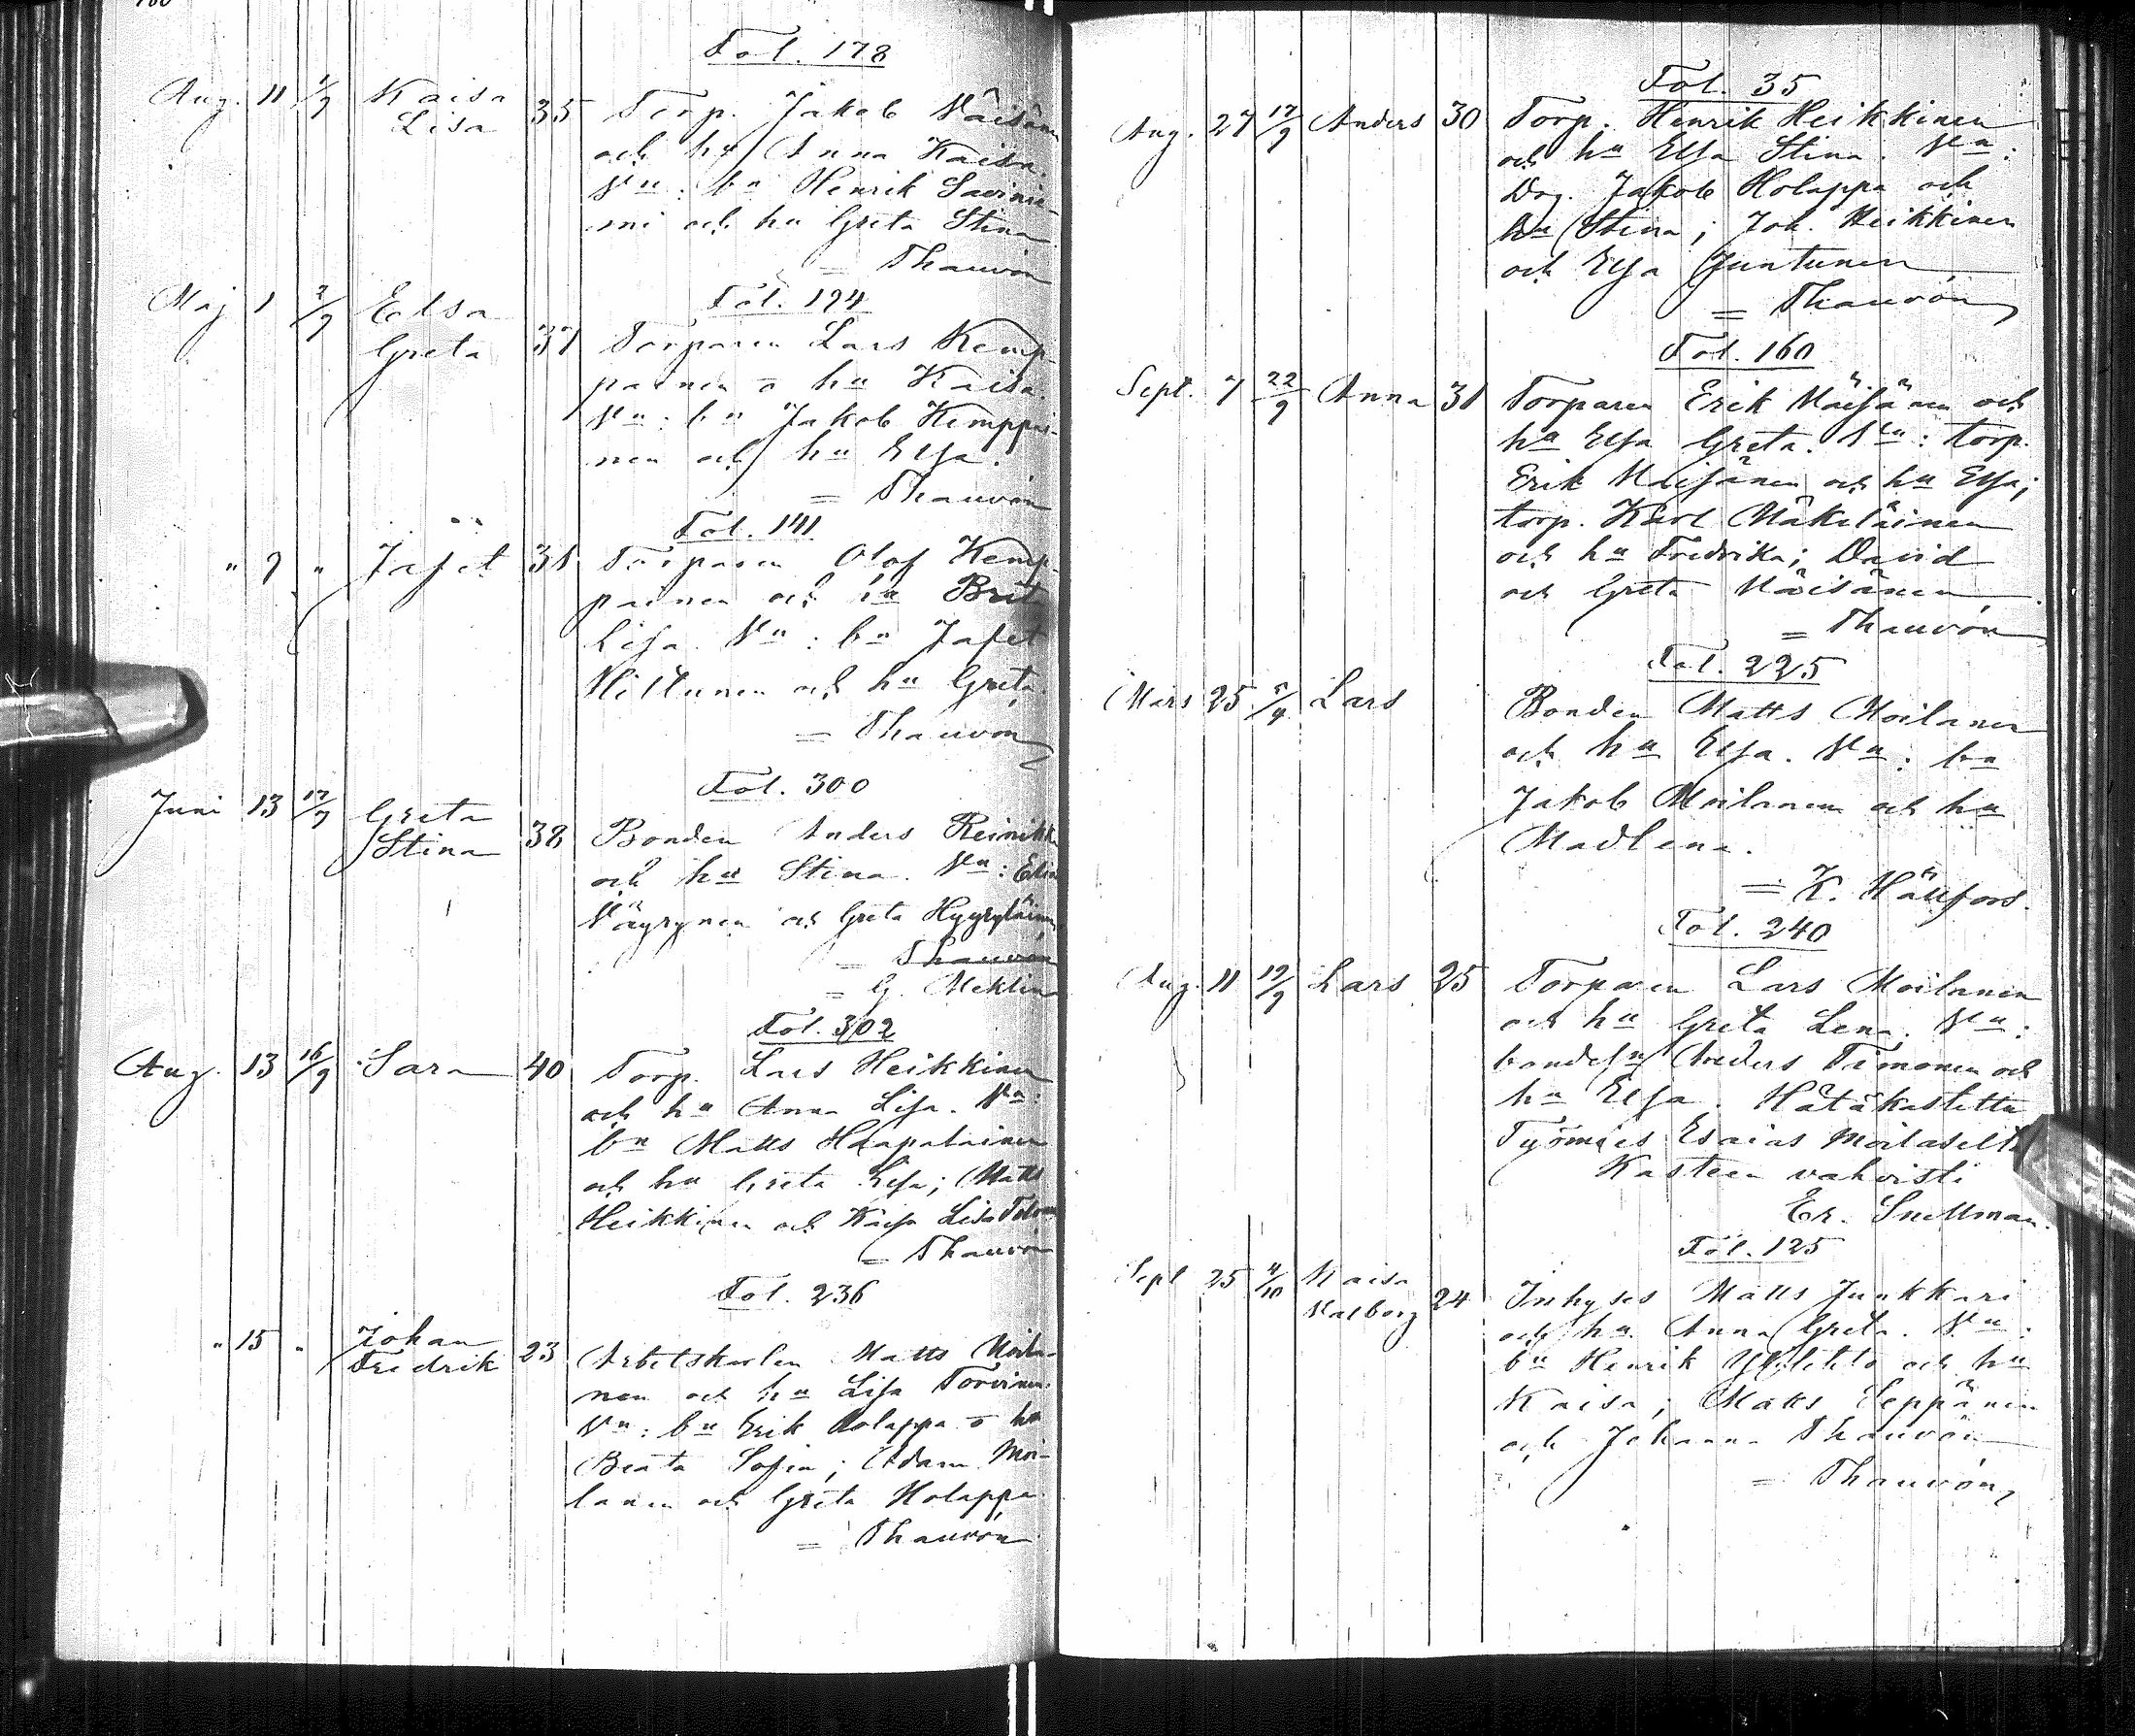 Fol. 178
Aug. 11 1/9 Kaisa Lisa 35 Torp. Jakob Väisän
och hu Anna Kaisa.
Vn: bn Henrik Savinie-
mi och hu Greta Stina
= Thauvón
Fol. 194
Maj 1 2/9 Elsa Greta 37 Torparen Lars Kemp-
painen o hu Kaisa.
Vn: bn Jakob Kemppai-
nen och hu Elsa.
= Thauvón
Fol. 141
" 9 " Jafet 31 Torparen Olof Kemp-
painen och hu Brita
Lisa. Vn: bn Jafet
Hiltunen och hu Greta.
= Thauvón
Fol. 300
Juni 13 12/9 Greta Stina 38 Bonden Anders Reinikk
och hu Stina. Vn: Elin
Väyrynen och Greta Hyyryläinen
= Thauvón
= G. Meklin
Fol. 302
Aug. 13 16/9 Sara 40 Torp. Lars Heikkinen
och hu Anna Lisa. Vn:
bn Matts Haapalainen
och hu Greta Lisa; Matts
Heikkinen och Kaisa Lisa
= Thauvón
Fol. 236
" 15 " Johan Fredrik 23 Arbetskarlen Matts Moila-
nen och hu Lisa Torvinen.
Vn: bn Erik Holappa o hu
Beata Sofia; Adam Moi-
lanen och Greta Holappa.
= Thauvón
Fol. 35
Aug. 27 17/9 Anders 30 Torp. Henrik Heikkinen
och hu Elsa Stina. Vn:
Drg. Jakob Holappa och
hu Stina; Joh. Heikkinen
och Elsa Juntunen
= Thauvón
Fol. 160
Sept. 7 22/9 Anna 31 Torparen Erik Väisänen och
hu Elsa Greta. Vn: torp.
Erik Väisänen och hu Elsa;
torp. Karl Mäkeläinen
och hu Fredrika; David
och Greta Väisänen
= Thauvón
Fol. 225
Mars 25 5/4 Lars Bonden Matts Moilanen
och hu Elsa. Vn: bn
Jakob Moilanen och hu
Madlena.
= K. Hällfors.
Fol. 240
Aug. 11 19/9 Lars 25 Torparen Lars Moilanen
och hu Greta Lena. Vn:
bondesn Anders Timonen och
hu Elsa. Hätäkastettu
Työmies Esaias Moilaselta
Kasteen vahvisti
Er. Snellman.
Fol. 125
Sept 25 4/10 Kaisa Valborg 24 Inhyses Matts Junkkari
och hu Anna Greta. Vn:
bn Henrik Ylitalo och hu
Kaisa; Matts Seppänen
och Johanna Thauvón
= Thauvón